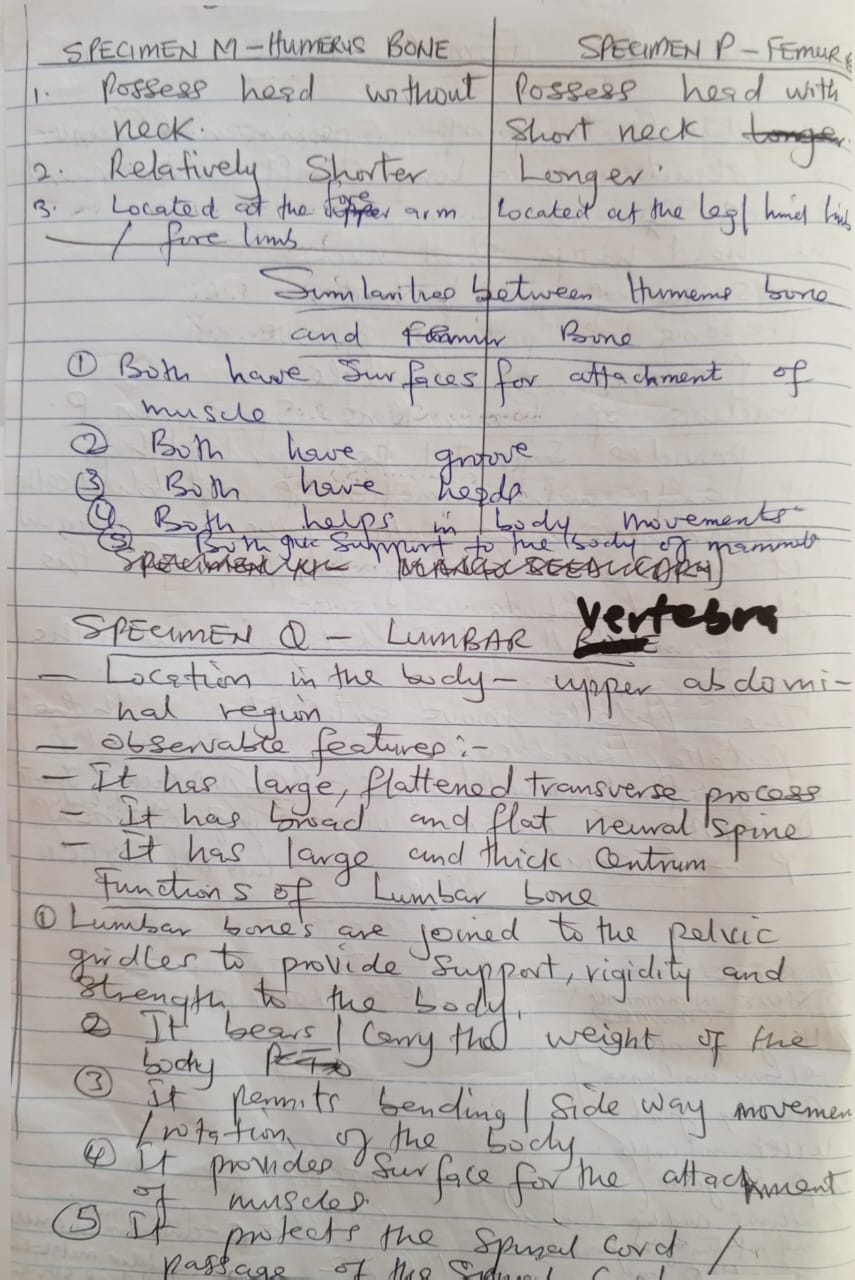 SPECIMEN M - HUMERUS BONE SPECIMEN P - FEMUR
1. Possess head without Possess head with
neck. Short neck Longer.
2. Relatively Shorter Longer.
3. Located at the fore arm Located at the leg/ hind limb
/ fore limb
Similarities between Humerus bone
and Femur Bone
① Both have Surfaces for attachment of
muscle
② Both have groove
③ Both have heads
④ Both helps in body movements
⑤ Both give Support to the body of mammals
SPECIMEN Q - LUMBAR Vertebra
- Location in the body - upper abdomi-
nal region
- Observable features :-
- It has large, flattened transverse process
- It has broad and flat neural spine
- It has large and thick Centrum
Functions of Lumbar bone
① Lumbar bones are joined to the pelvic
girdles to provide support, rigidity and
strength to the body.
② It bears / Carry the weight of the
body
③ It permits bending / Side way movemen
/ rotation of the body
④ It provides Surface for the attachment
of muscles.
⑤ It protects the Spinal Cord /
passage of the Spinal Cord